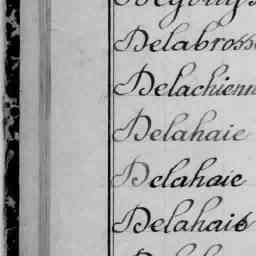 Delabross
Delachienn
Delahaie
Delahaie
Delahais